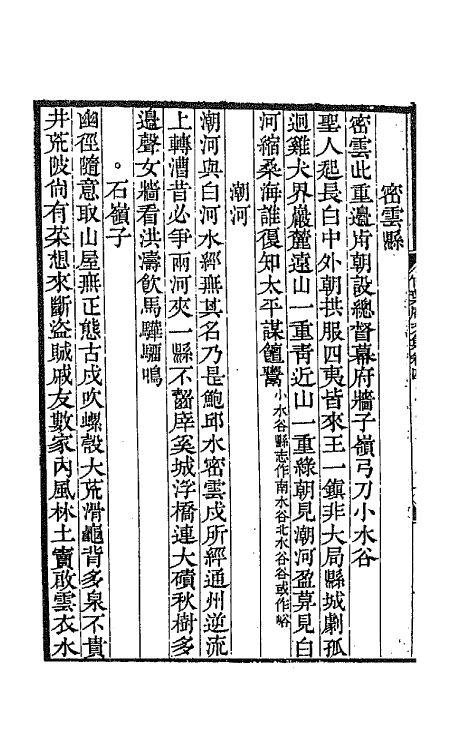 密雲縣
密雲此重邊前朝設總督幕府牆子嶺弓刀小水谷
聖人起長白中外朝拱服四夷皆來王一鎮非大局縣城劇孤
迥雞犬界巖麓遠山一重靑近山一重綠朝見潮河盈莫見白
河縮桑海誰復知太平謀饘鬻小水谷縣志作南水谷北水谷谷或作峪
潮河
潮河與白河水經無其名乃是鮑邱水密雲戍所經通州逆流
上轉漕昔必爭兩河夾一縣不齧庠奚城浮橋連大磧秋樹多
邊聲女牆看洪濤飲馬驊騮鳴
。石嶺子
幽徑隨意取山屋無正態古戍吹螺殼大荒滑龜背多泉不貴
井荒陂尙有菜想來斷盜賊戚友數家內風林土竇敢雲衣水